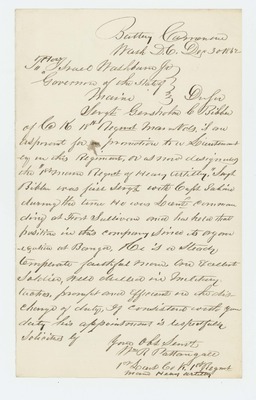 Battery Cameron
Wash D.C. Dec 30 1862
To Israel Washburn Jr
Governor of the State of
Maine
Sir
Sergt Gershom C. Bibber
of Co K 18th Regmt Maine Vols. is an
aspirant for a promotion to a Lieutenant
cy in this Regiment, or as now designated
the 1st Maine Regmt of Heavy Artilly. Sergt
Bibber was first Sergt with Capt Sabine
during the time he was Lieut comman
ding at Fort Sullivan and has held that
position in this company since its organ
ization at Bangor. He is a steady
temperate faithful man, an excellent
soldier, well skilled in Military
tactics, prompt and efficient in the dis
charge of duty, if consistent with your
duty his appointment is respectfully
solicited by
Your Obt Servt
Wm R Pattangall
1st Lieut Co K. 1st Regmt
Maine Heavy Artillery